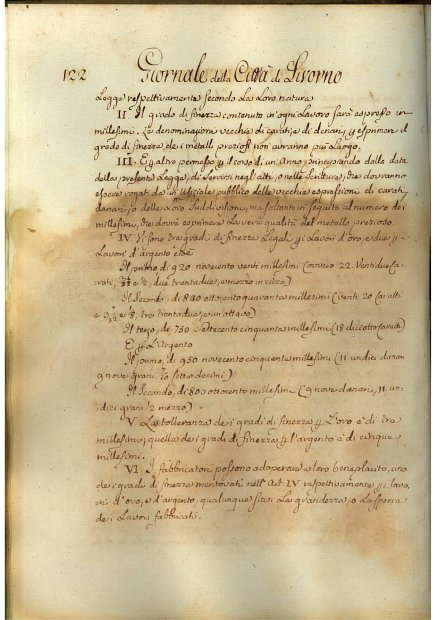 122 Giornale della Città di Livorno
Legge respettivamente secondo la loro natura
II Il grado di finezza contenuto in ogni Lavoro sarà espresso in
millesimi. La denominazione vecchia di carati, e di denari, p esprimere il
grado di finezza de i metalli preziosi non avranno più luogo.
III. E gl'altro permesso p il corso di un Anno, principiando dalla data
della presente Legge, di servirsi negl'atti, o nelle scritture, che dovranno
essere rogati da un ufficiale pubblico delle vecchie espressioni di carati,
danari, o delle loro suddivisioni, ma soltanto in seguito al numero dei
millesimi, che dovrà esprimere la vera qualità del metallo prezioso.
IV Vi sono tre gradi di finezza Legali p i Lavori d'oro, e due p i
Lavori d'argento cioè
Il primo di 920 novecento venti millesimi (ovvero 22. Ventidue ca-
rati, 2/32 e 1/2, due trentadue, e mezzo in circa)
Il Secondo, di 840 ottocento quaranta millesimi (venti 20 carati
e 5/32 e 1/8, trentadue, e un ottavo)
Il terzo, di 750. Settecento cinquanta millesimi (18 diciotto carati)
E p L'Argento
Il primo, di 950 novecento cinquanta millesimi (11 undici danari
9 nove grani 7/10 sette decimi)
Il Secondo, di 800 ottocento millesimi (9 nove danari, 11. un-
dici grani 1/2 mezzo)
V. La tolleranza de i gradi di finezza p L'oro è di tre
millesimi, quella de i gradi di finezza p l'argento è di cinque
millesimi.
VI. I fabbricatori possono adoperare a loro beneplacito, uno
de i gradi di finezza mentovati nell'Art. IV respettivamente p i lavo-
ri d'oro, e d'argento, qualunque siasi la grandezza, o la specie
de i Lavori fabbricati.